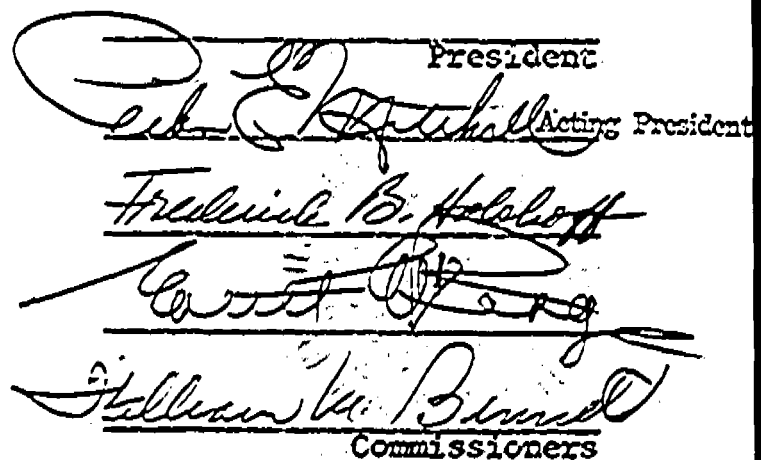 President
Peter E. Mitchell Acting President
Frederick B. Holoboff
William M. Bennett
Commissioners